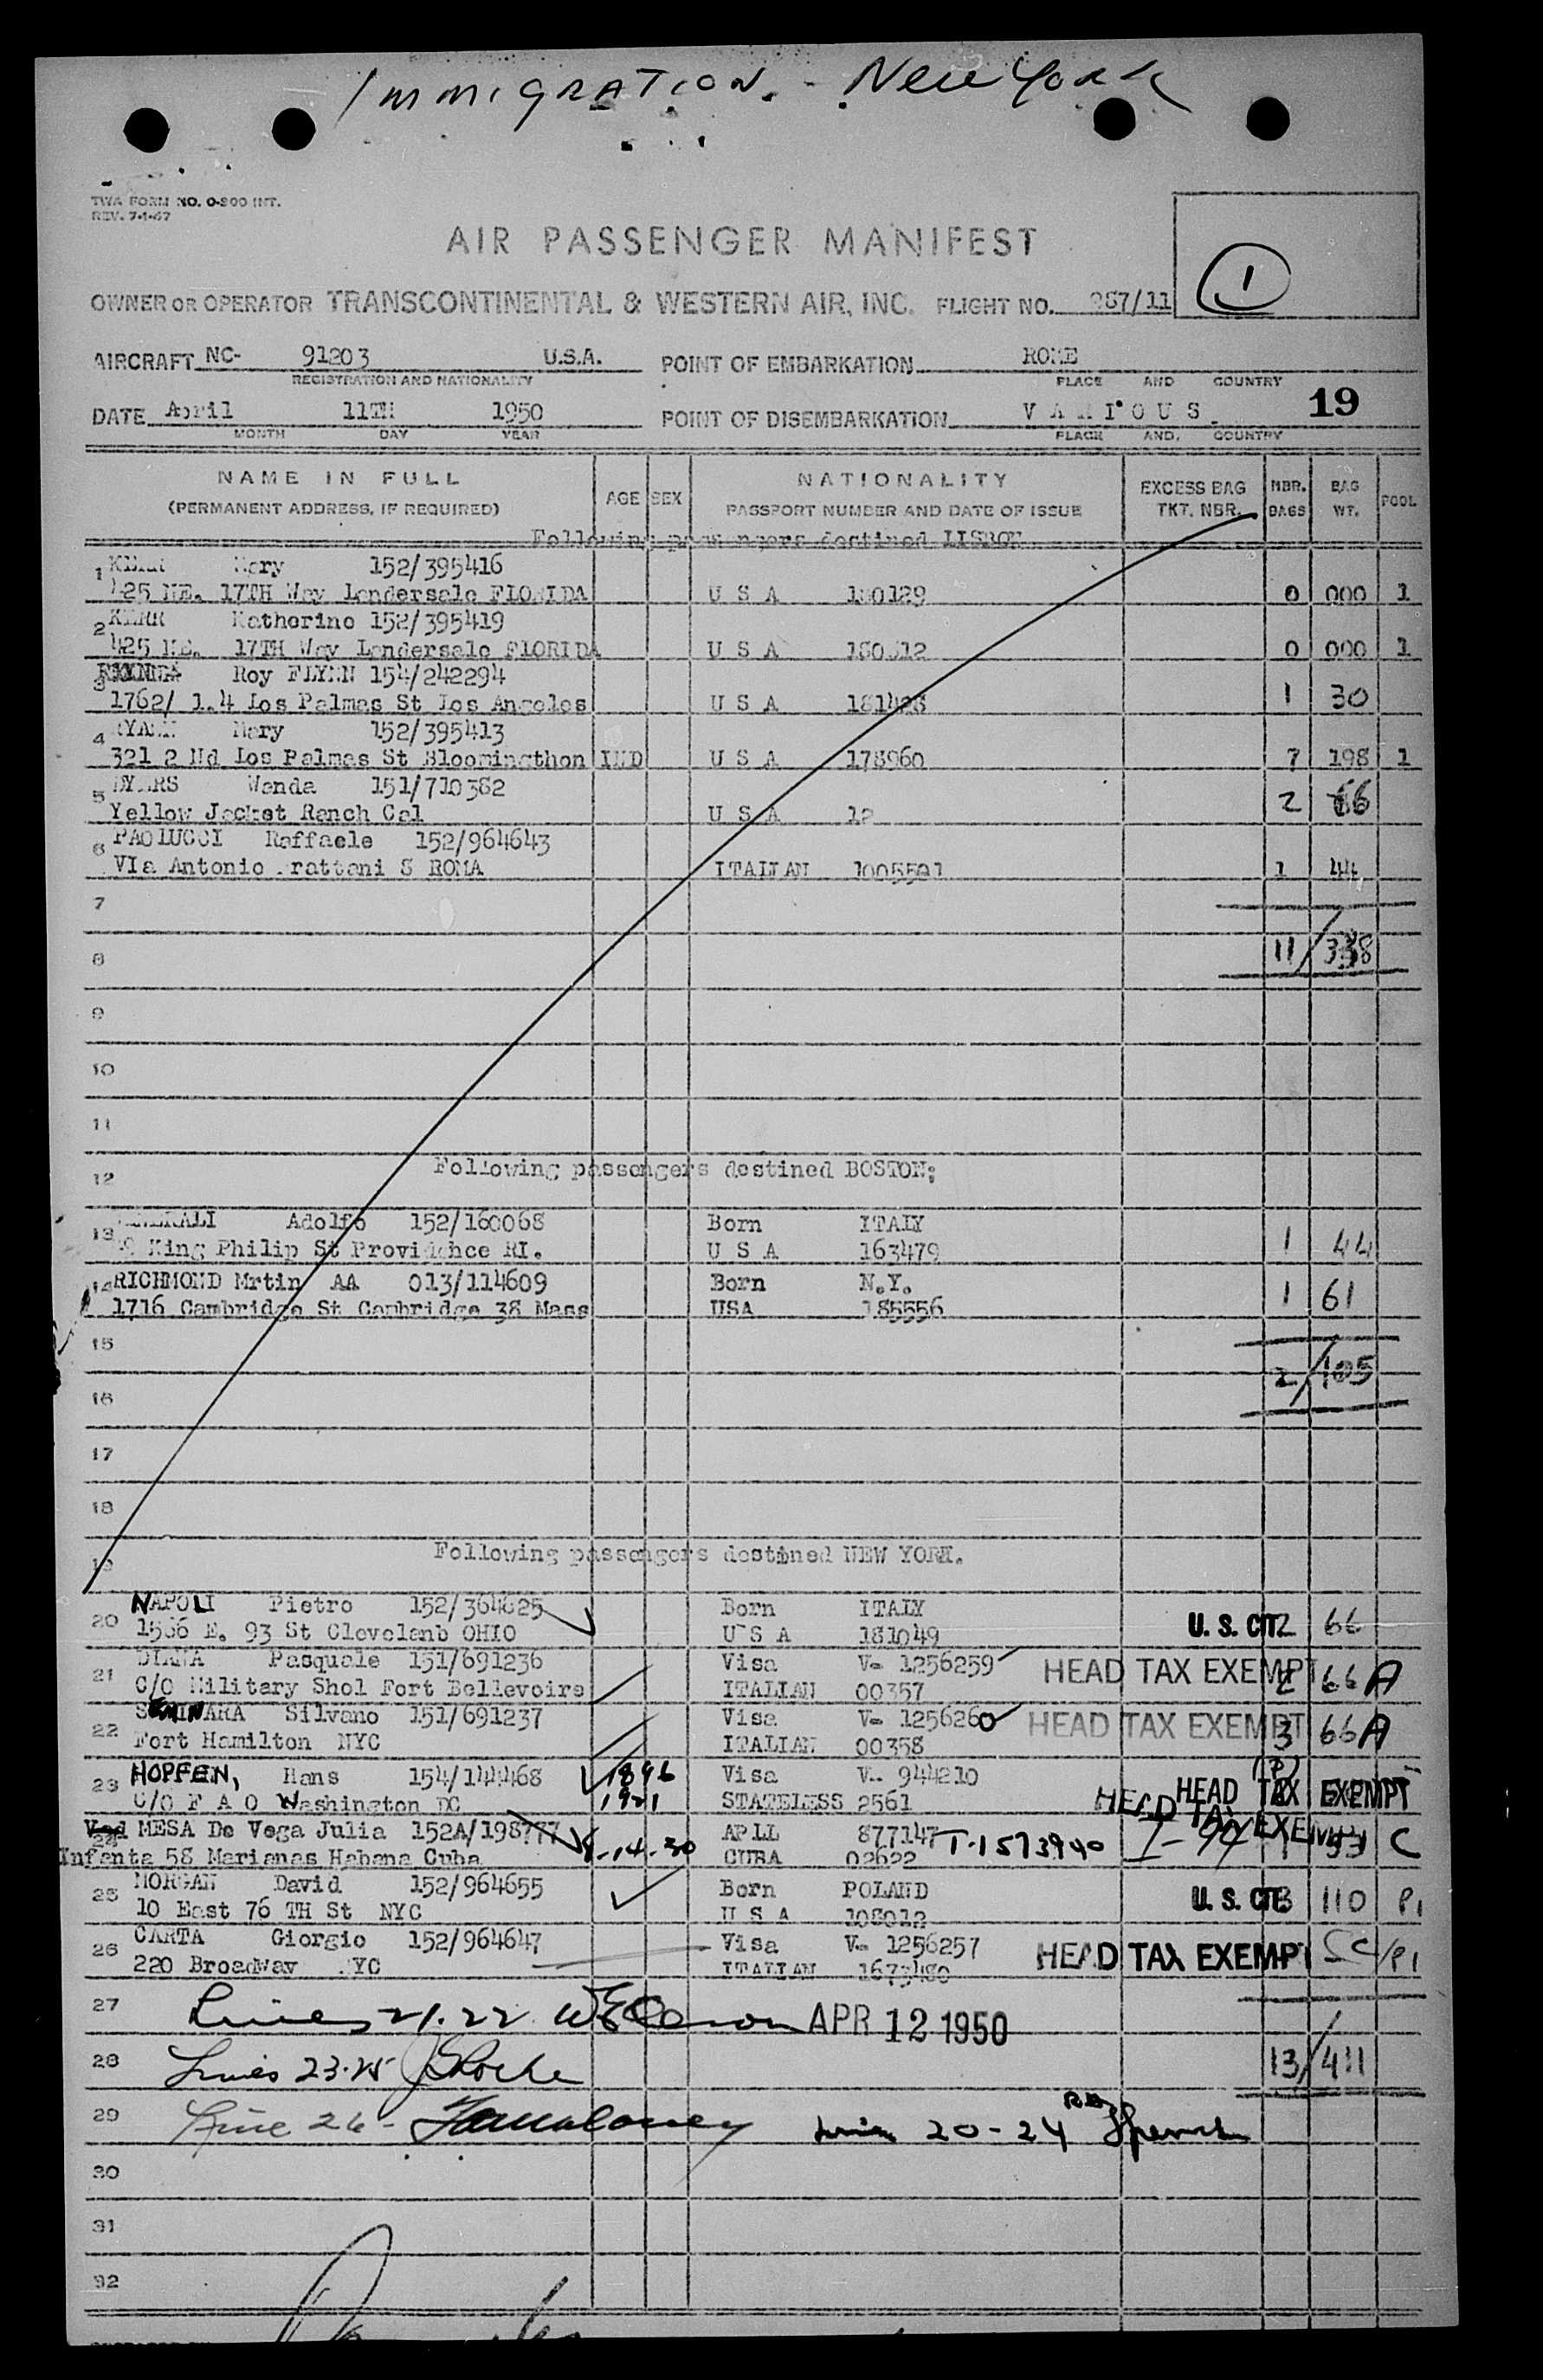 IMMIGRATION. - New York
TWA FORM NO. O-800 INT.
REV. 7-1-47
AIR PASSENGER MANIFEST
1
OWNER OR OPERATOR TRANSCONTINENTAL & WESTERN AIR, INC. FLIGHT NO. 967/11
AIRCRAFT NC- 91203 U.S.A. POINT OF EMBARKATION ROME
REGISTRATION AND NATIONALITY PLACE AND COUNTRY
DATE April 11TH 1950 POINT OF DISEMBARKATION VARIOUS 19
MONTH DAY YEAR PLACE AND COUNTRY
NAME IN FULL AGE SEX NATIONALITY EXCESS BAG NBR. BAG POOL
(PERMANENT ADDRESS, IF REQUIRED) PASSPORT NUMBER AND DATE OF ISSUE TKT. NBR. BAGS WT.
Following passengers destined LISBON
1 KERR Mary 152/395416
425 NE. 17TH Way Landersale FLORIDA U S A 180129 0 000 1
2 KERR Katherine 152/395419
425 NE. 17TH Way Landersale FLORIDA U S A 0 000 1
3 Roy FLYNN 154/242294
1762/ 1.4 Los Palmas St Los Angeles U S A 1 30
4 Mary 152/395413
321 2 Nd Los Palmas St Bloomingthon IND U S A 178960 7 198 1
5 Wanda 151/710382
Yellow Jacket Ranch Cal U S A 12 2 66
6 PAOLUCCI Raffaele 152/964643
VIa Antonio 8 ROMA ITALIAN 1005591 1 44
7
8 11/338
9
10
11
12 Following passengers destined BOSTON;
13 Adolfo 152/160068 Born ITALY
King Philip St Providence RI. U S A 163479 1 44
14 RICHMOND Mrtin AA 013/114609 Born N.Y.
1716 Cambridge St Cambridge 38 Mass USA 185556 1 61
15
16 2/105
17
18
19 Following passengers destined NEW YORK.
20 NAPOLI Pietro 152/364625 Born ITALY
1566 E. 93 St Clevelanb OHIO U S A 181049 U. S. CIT. 2 66
21 DIANA Pasquale 151/691236 Visa V- 1256259 HEAD TAX EXEMPT
C/O Military Shol Fort Bellevoire ITALIAN 00357 66 A
22 SEMINARA Silvano 151/691237 Visa V- 1256260 HEAD TAX EXEMPT
Fort Hamilton NYC ITALIAN 00358 3 66 A
23 HOPFEN, Hans 154/144468 1896 Visa V- 944210 HEAD TAX EXEMPT
C/O F A O Washington DC 1921 STATELESS 2561 HEAD TAX EXEMPT
24 MESA De Vega Julia 152A/198777 APLL 877147 T-1573940 I-94 C
Infanta 58 Marianas Habana Cuba CUBA 02622
25 MORGAN David 152/964655 Born POLAND
10 East 76 TH St NYC U S A 108012 U. S. CIT. 3 110 P1
26 CARTA Giorgio 152/964647 Visa V- 1256257
220 Broadway NYC ITALIAN 1673480 HEAD TAX EXEMPT SC/P1
27 Lines 21.22 APR 12 1950
28 Lines 23.25 13/411
29 Line 26 - Lines 20-24
30
31
32